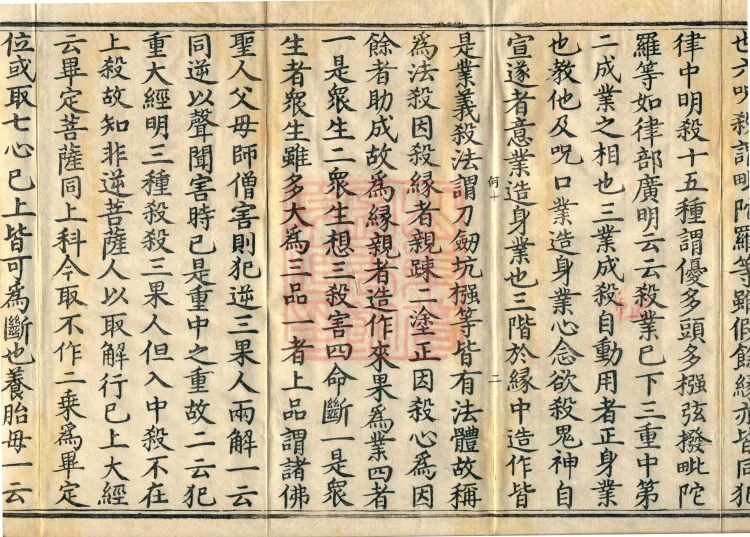 也六呪殺謂毗陀羅等雖假餘緣亦皆同犯
律中明殺十五種謂優多頭多撥弦撥毗陀
羅等如律部廣明云云殺業已下三重中第
二成業之相也三業成殺自動用者正身業
也教他及呪口業造身業心念欲殺鬼神自
宣遂者意業造身業也三階於緣中造作皆
何十
二
是業義殺法謂刀劒坑摾等皆有法體故稱
爲法殺因殺緣者親踈二塗正因殺心爲因
餘者助成故爲緣親者造作來果爲業四者
一是衆生二衆生想三殺害四命斷一是衆
生者衆生雖多大爲三品一者上品謂諸佛
聖人父母師僧害則犯逆三果人兩解一云
同逆以聲聞害時已是重中之重故二云犯
重大經明三種殺殺三果人但入中殺不在
上殺故知非逆菩薩人以取解行已上大經
云畢定菩薩同上科今取不作二乘爲畢定
位或取七心已上皆可爲斷也養胎母一云